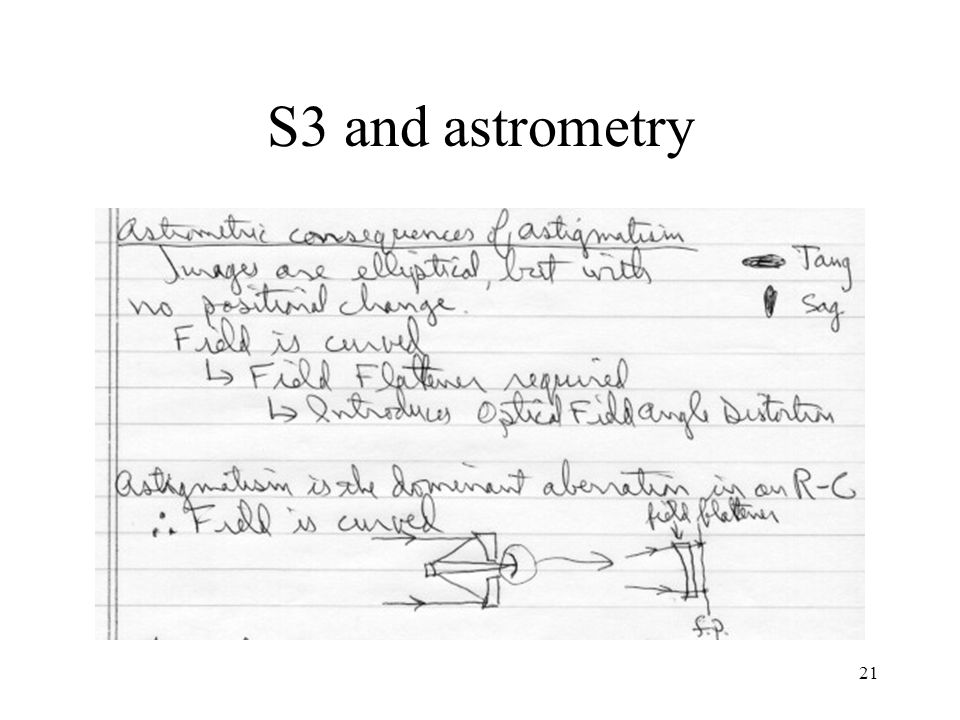 S3 and astrometry
Astrometric consequences of astigmatism
Images are elliptical, but with
Tang
no positional change.
Sag
Field is curved
↳ Field Flattener required
↳ Introduces Optical Field Angle Distortion
Astigmatism is the dominant aberration in an R-C
∴ Field is curved
field flatener
f.p.
21